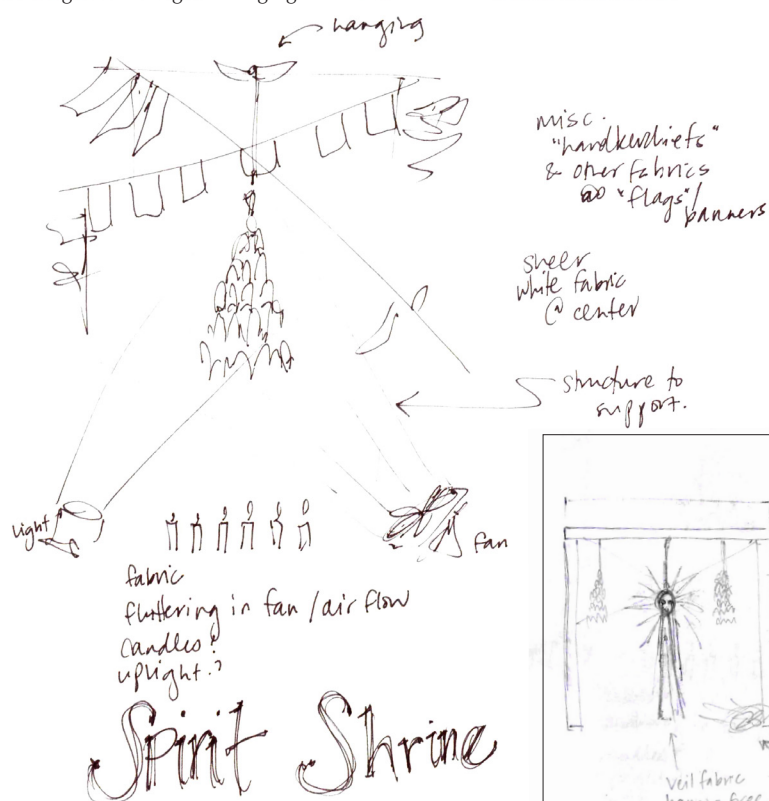 hanging
misc.
"handkerchiefs"
& other fabrics
"flags"/
banners
sheer
white fabric
@ center
structure to
support.
light
fan
fabric
fluttering in fan / air flow
candles?
uplight?
Spirit Shrine
veil fabric